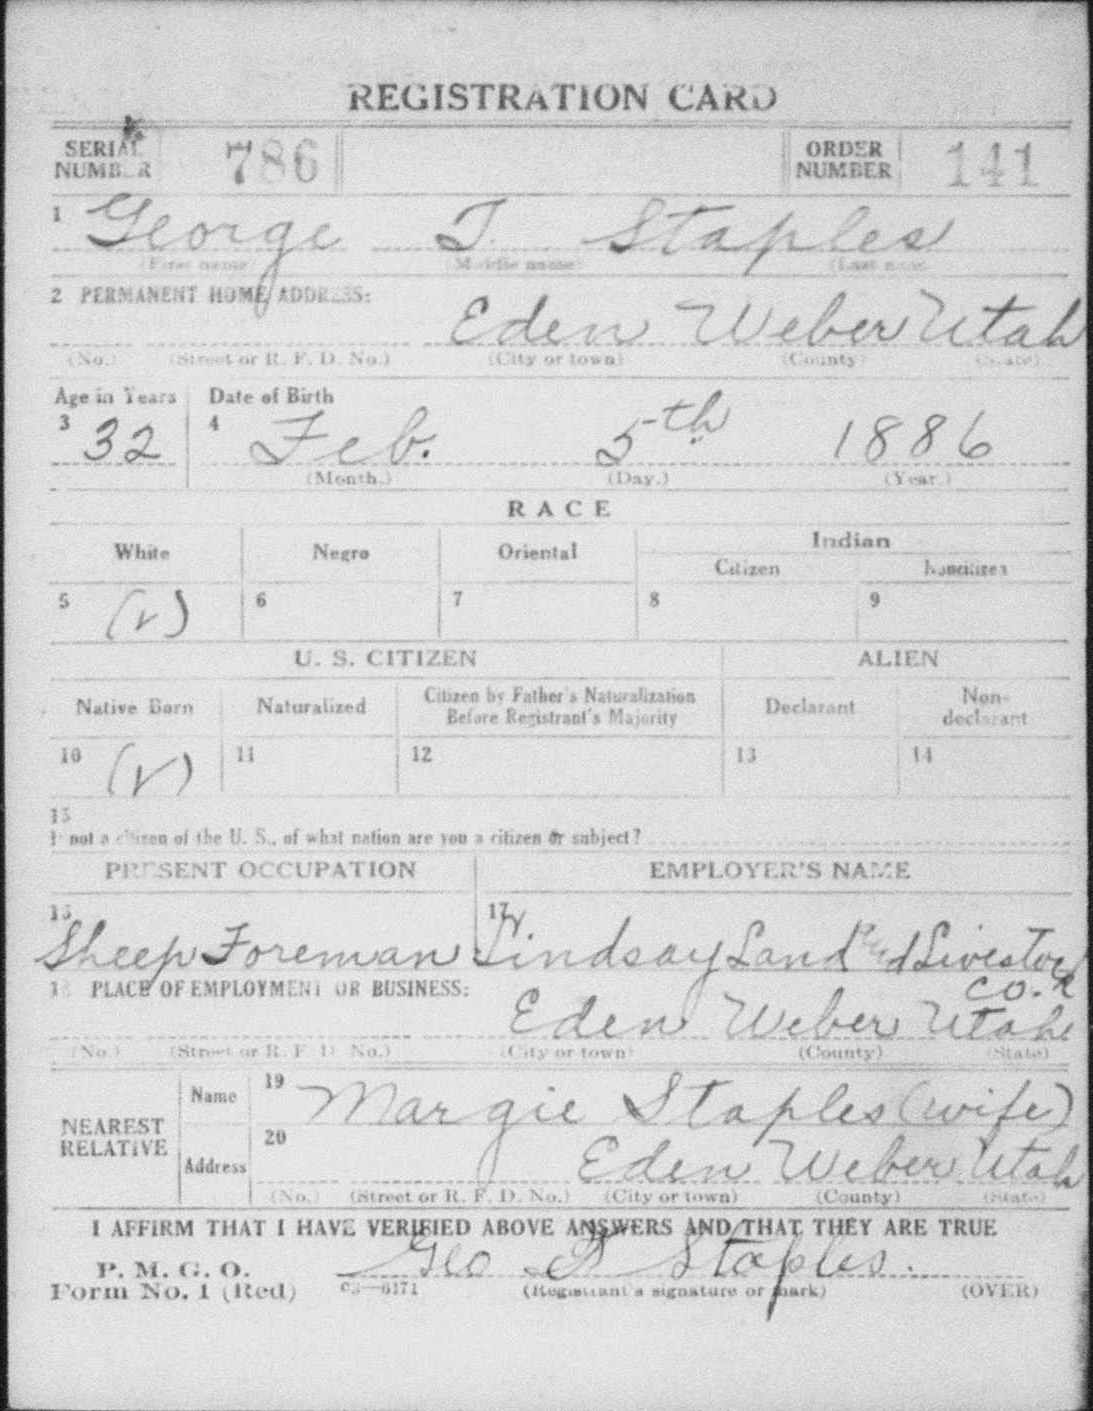 REGISTRATION CARD
SERIAL NUMBER 786 ORDER NUMBER 141
1 George T. Staples
(First name) (Middle name) (Last name)
2 PERMANENT HOME ADDRESS:
Eden Weber Utah
(No.) (Street or R. F. D. No.) (City or town) (County) (State)
Age in Years Date of Birth
3 32 4 Feb. 5th 1886
(Month.) (Day.) (Year.)
RACE
White Negro Oriental Indian
Citizen Noncitizen
5 (v) 6 7 8 9
U. S. CITIZEN ALIEN
Native Born Naturalized Citizen by Father's Naturalization Before Registrant's Majority Declarant Non-declarant
10 (v) 11 12 13 14
15
If not a citizen of the U. S., of what nation are you a citizen or subject?
PRESENT OCCUPATION EMPLOYER'S NAME
16 Sheep Foreman 17 Lindsay Land and Livestock
Co.
18 PLACE OF EMPLOYMENT OR BUSINESS:
Eden Weber Utah
(No.) (Street or R. F. D. No.) (City or town) (County) (State)
NEAREST RELATIVE Name 19 Margie Staples (wife)
Address 20 Eden Weber Utah
(No.) (Street or R. F. D. No.) (City or town) (County) (State)
I AFFIRM THAT I HAVE VERIFIED ABOVE ANSWERS AND THAT THEY ARE TRUE
P. M. G. O.
Form No. 1 (Red) Geo T Staples.
03—6171 (Registrant's signature or mark) (OVER)